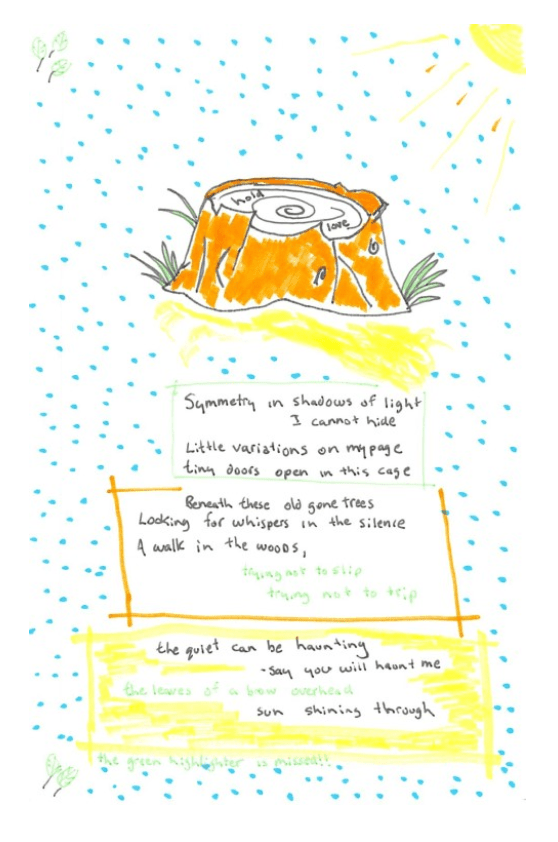 hold
love
Symmetry in shadows of light
I cannot hide
Little variations on my page
tiny doors open in this cage
Beneath these old gone trees
Looking for whispers in the silence
A walk in the woods,
trying not to slip
trying not to trip
the quiet can be haunting
-say you will haunt me
the leaves of a brow overhead
sun shining through
the green highlighter is missed!!